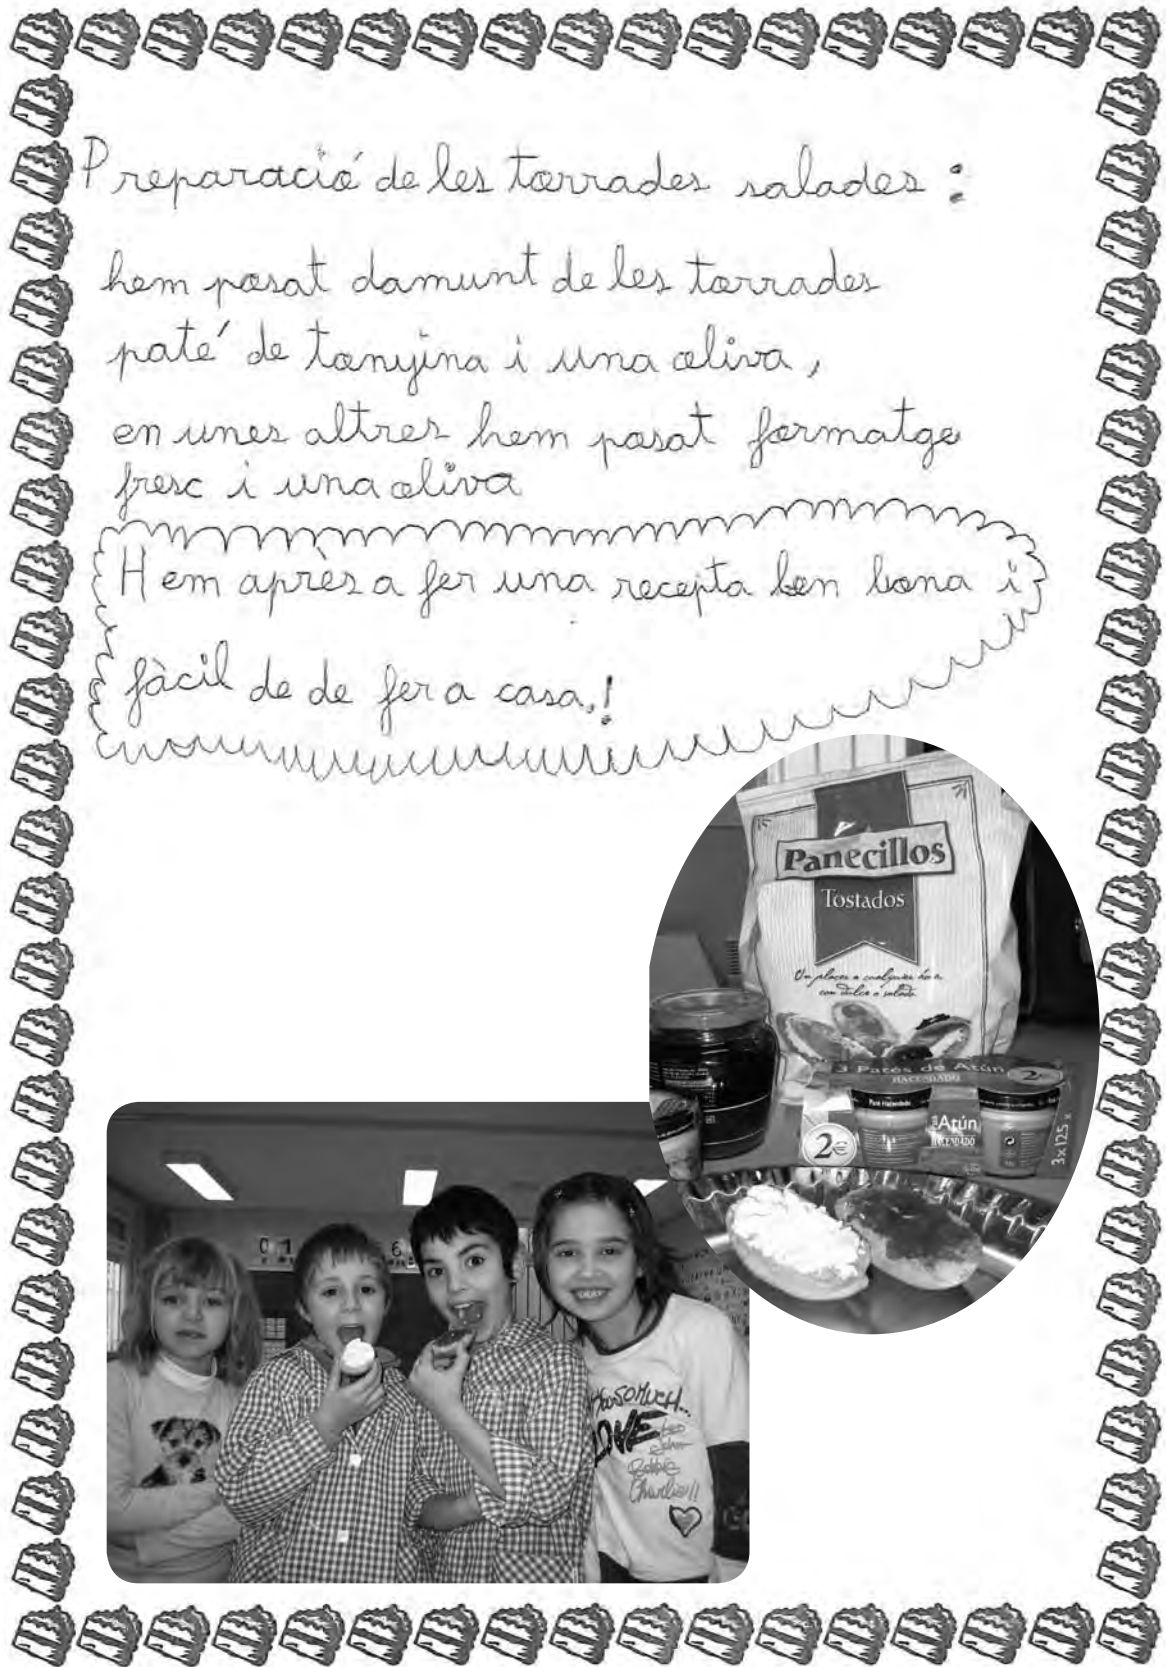 Preparació de les torrades salades :
hem posat damunt de les torrades
paté de tonyina i una oliva,
en unes altres hem posat formatge
fresc i una oliva
Hem après a fer una recepta ben bona i
fàcil de de fer a casa.!
Panecillos
Tostados
Un placer a cualquier hora
con dulce o salado
3 Patés de Atún
HACENDADO
2€
Paté Hacendado
Atún
HACENDADO
2€
3x125
0 1
6
SO MUCH...
LOVE
Charlie!!